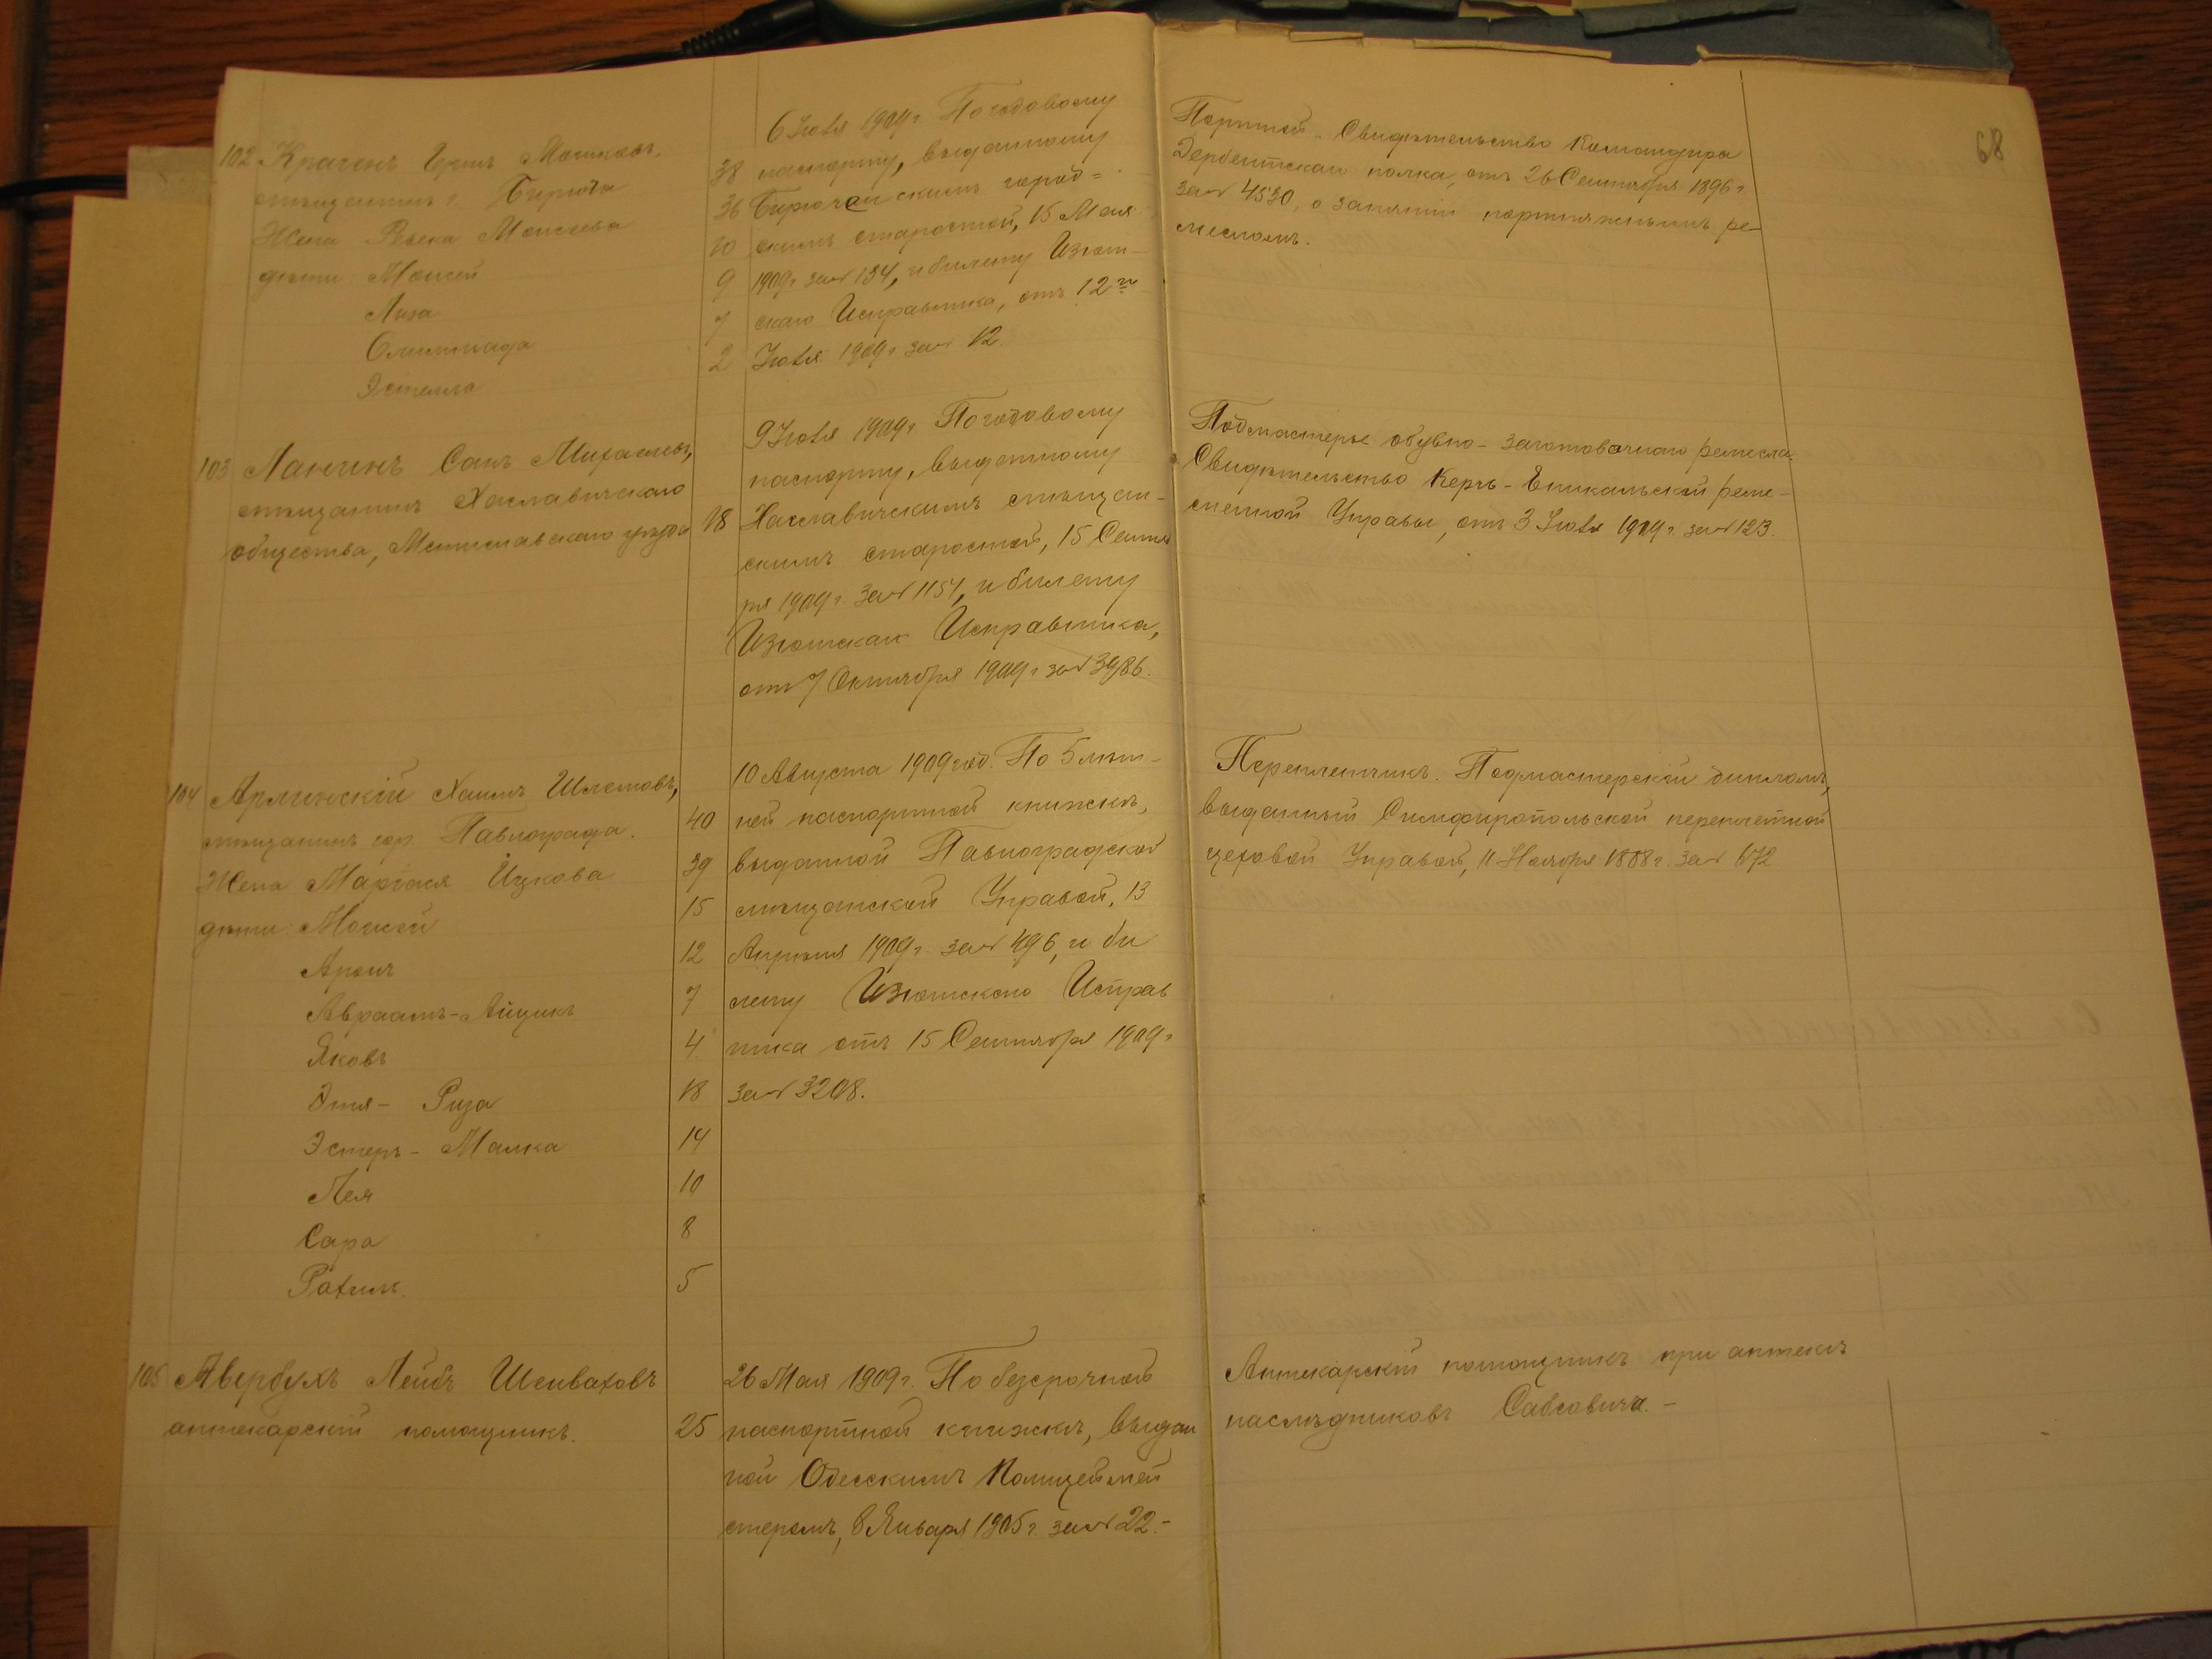 68
102 Крагенъ Ершъ Мошковъ,
мѣщанинъ г. Бирюча
Жена Ревека Моисеева
дѣти: Моисей
Лиза
Олимпиада
Эстелла
38
36
10
9
7
2
6 Іюля 1909 г. По годовому
паспорту, выданному
Бирюченскимъ город=
скимъ старостой, 15 Мая
1909 г. за № 134, и билету Изюм-
скаго Исправника, отъ 12го
Іюля 1909 г. за № 12.
Портной. Свидѣтельство Командира
Дербентскаго полка, отъ 26 Сентября 1896 г.
за № 4530, о занятіи портняжнымъ ре-
месломъ.
103 Ланчинъ Сань Михаелевъ,
мѣщанинъ Хославичскаго
общества, Мстиславскаго уѣзда
18
9 Іюля 1909 г. По годовому
паспорту, выданному
Хославичскимъ мѣщан-
скимъ старостой, 15 Сентяб
ря 1909 г. за № 1154, и билету
Изюмскаго Исправника,
отъ 7 Октября 1909 г. за № 3986.
Подмастерье обувно-заготовочнаго ремесла.
Свидѣтельство Керчь-Еникальской реме-
сленной Управы, отъ 3 Іюля 1909 г. за № 123.
104 Арлинскій Хаимъ Шлемовъ,
мѣщанинъ гор. Павлограда.
Жена Маріася Ицкова
дѣти: Моисей
Аронъ
Авраамъ-Айзикъ
Яковъ
Этя- Риза
Эстеръ- Малка
Лея
Сара
Рахиль.
40
39
15
12
7
4
18
14
10
8
5
10 Августа 1909 год. По 5 лѣт-
ней паспортной книжкѣ,
выданной Павлоградской
мѣщанской Управой, 13
Апрѣля 1909 г. за № 496, и би
лету Изюмскаго Исправ
ника отъ 15 Сентября 1909 г.
за № 3208.
Переплетчикъ. Подмастерскій дипломъ,
выданный Симферопольской переплетной
цеховой Управой, 11 Ноября 1888 г. за № 672
105 Авербухъ Лейбъ Шенваховъ
аптекарскій помощникъ.
25
26 Мая 1909 г. По безсрочной
паспортной книжкѣ, выдан
ной Одесскимъ Полицеймей
стеромъ, 8 Января 1905 г. за № 22.-
Аптекарскій помощникъ при аптекѣ
наслѣдниковъ Савсовича.-